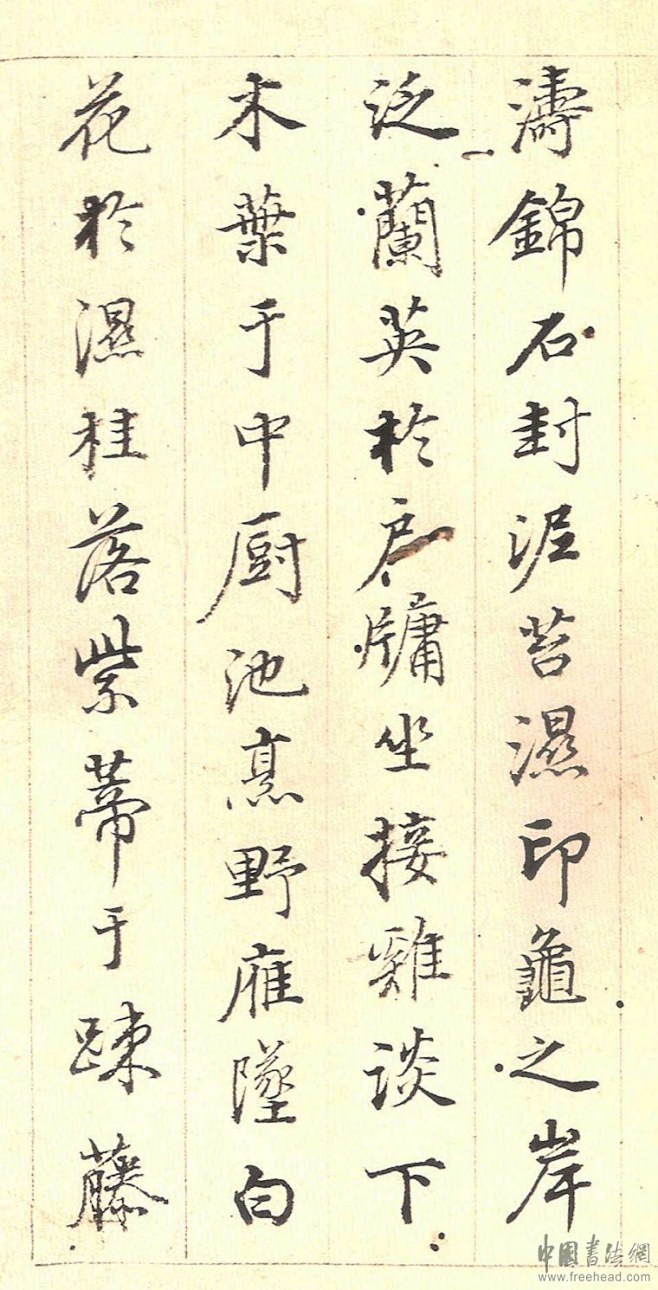 濤錦石封泥苔濕印龜之岸
泛蘭英於戶牖坐接雞談下
木葉于中厨池烹野雁墜白
花於濕桂落紫蒂于踈藤
中國書法網
www.freehead.com